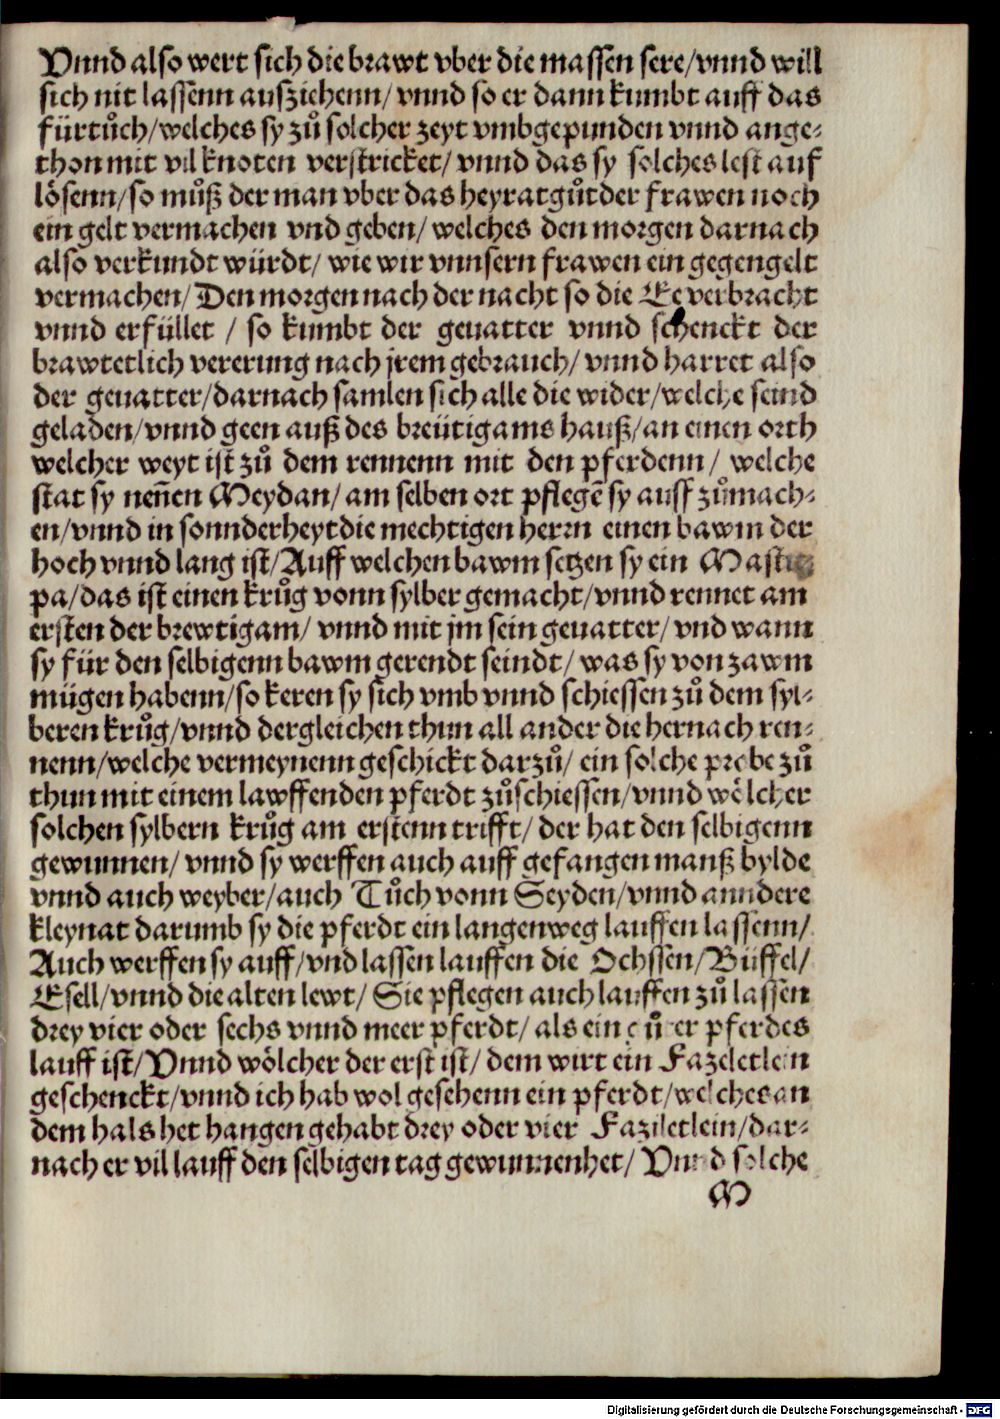 Vnnd also wert sich die brawt vber die massen sere/vnnd will
sich nit lassenn auszziehenn/ vnnd so er dann kumbt auff das
fürtůch/welches sy zů solcher zeyt vmbgepunden vnnd ange⸗
thon mit vil knoten verstricket/ vnnd das sy solches lest auf
lösenn/so můß der man vber das heyratgůt der frawen noch
ein gelt vermachen vnd geben/ welches den morgen darnach
also verkundt würdt/ wie wir vnnsern frawen ein gegengelt
vermachen/ Den morgen nach der nacht so die Ee verbracht
vnnd erfüllet / so kumbt der geuatter vnnd schenckt der
brawt etlich vererung nach jrem gebrauch/ vnnd harret also
der geuatter/darnach samlen sich alle die wider/welche seind
geladen/vnnd geen auß des breütigams hauß/an einen orth
welcher weyt ist zů dem rennenn mit den pferdenn/ welche
stat sy neñen Meydan/ am selben ort pflegẽ sy auff zůmach⸗
en/vnnd in sonnderheyt die mechtigen herrn einen bawm der
hoch vnnd lang ist/Auff welchen bawm setzen sy ein
pa/das ist einen krůg vonn sylber gemacht/vnnd rennet am
ersten der brewtigam/ vnnd mit jm sein geuatter/ vnd wann
sy für den selbigenn bawm gerendt seindt/ was sy von zawm
mügen habenn/so keren sy sich vmb vnnd schiessen zů dem syl⸗
beren krůg/vnnd dergleichen thun all ander die hernach ren⸗
nenn/welche vermeynenn geschickt darzů/ ein solche probe zů
thun mit einem lawffenden pferdt zůschiessen/vnnd wölcher
solchen sylbern krůg am erstenn trifft/ der hat den selbigenn
gewunnen/ vnnd sy werffen auch auff gefangen manß bylde
vnnd auch weyber/auch Tůch vonn Seyden/vnnd anndere
kleynat darumb sy die pferdt ein langen weg lauffen lassenn/
Auch werffen sy auff/vnd lassen lauffen die Ochssen/Büffel/
Esell/vnnd die alten lewt/ Sie pflegen auch lauffen zů lassen
drey vier oder sechs vnnd meer pferdt/ als ein gůter pferdes
lauff ist/Vnnd wölcher der erst ist/ dem wirt ein Fazeletlein
geschenckt/vnnd ich hab wol gesehenn ein pferdt/welches an
dem hals het hangen gehabt drey oder vier Faziletlein/dar⸗
nach er vil lauff den selbigen tag gewunnen het/ Vnnd solche
M
Digitalisierung gefördert durch die Deutsche Forschungsgemeinschaft - DFG